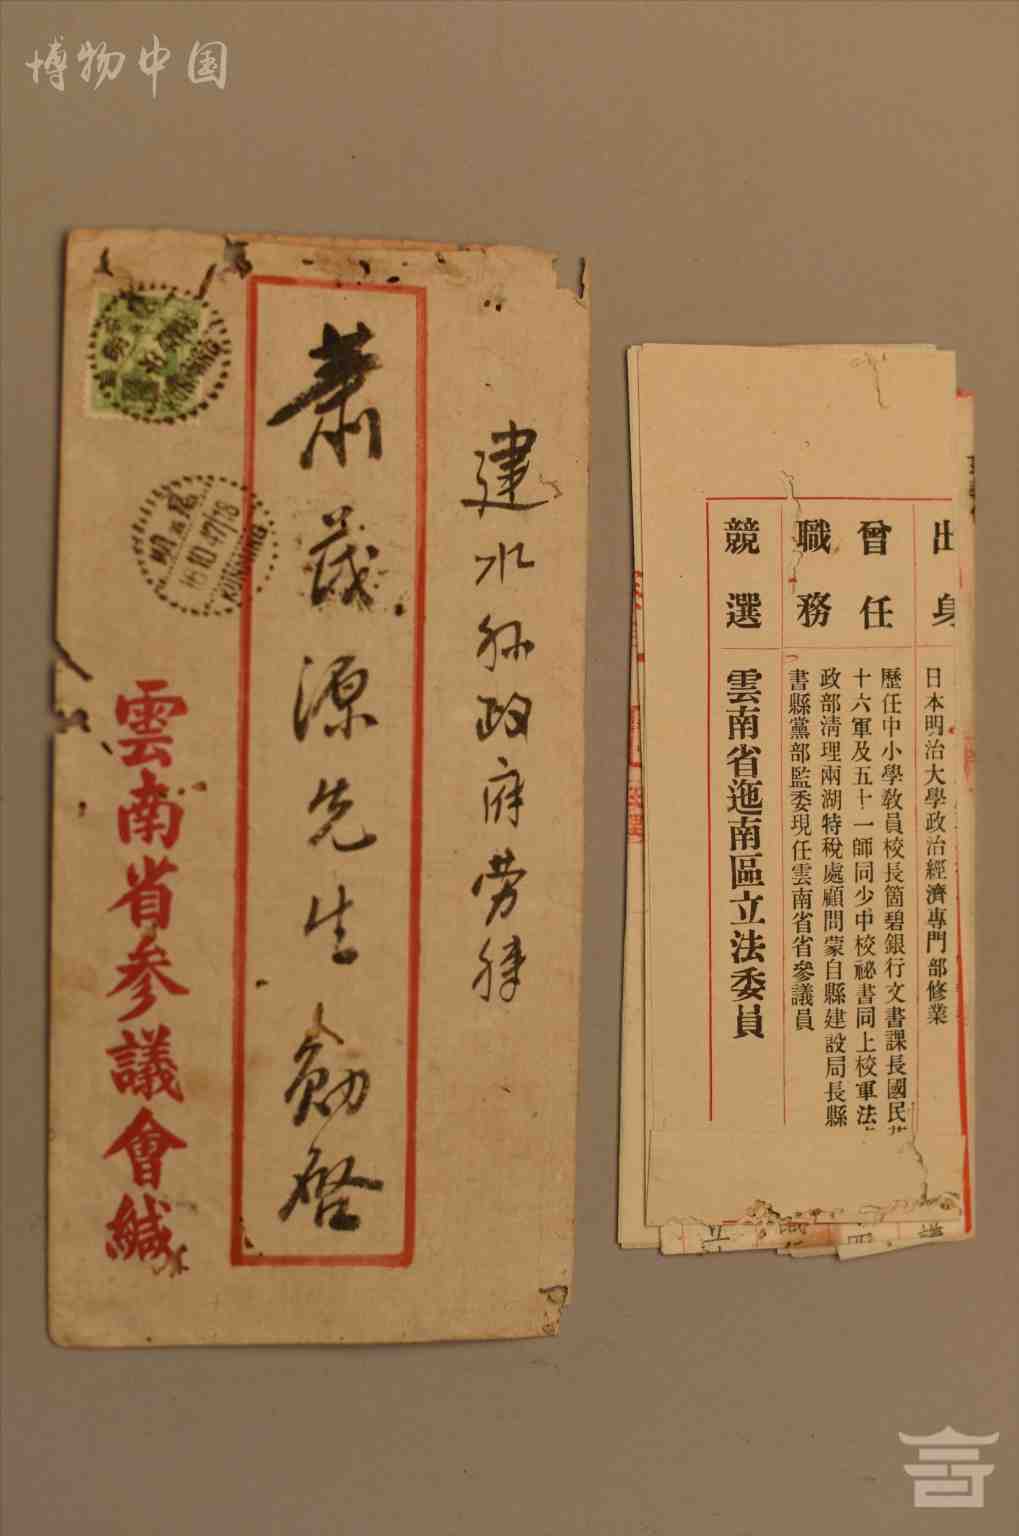 博物中国
建水縣政府勞績
蕭茂源先生勛啓
雲南省參議會緘
昆明
16.10.47.18
KUNMING
出身
日本明治大學政治經濟專門部修業
曾任職務
歷任中小學敎員校長箇碧銀行文書課長國民革
十六軍及五十一師同少中校祕書同上校軍法
政部淸理兩湖特稅處顧問蒙自縣建設局長縣
書縣黨部監委現任雲南省省參議員
競選
雲南省迤南區立法委員